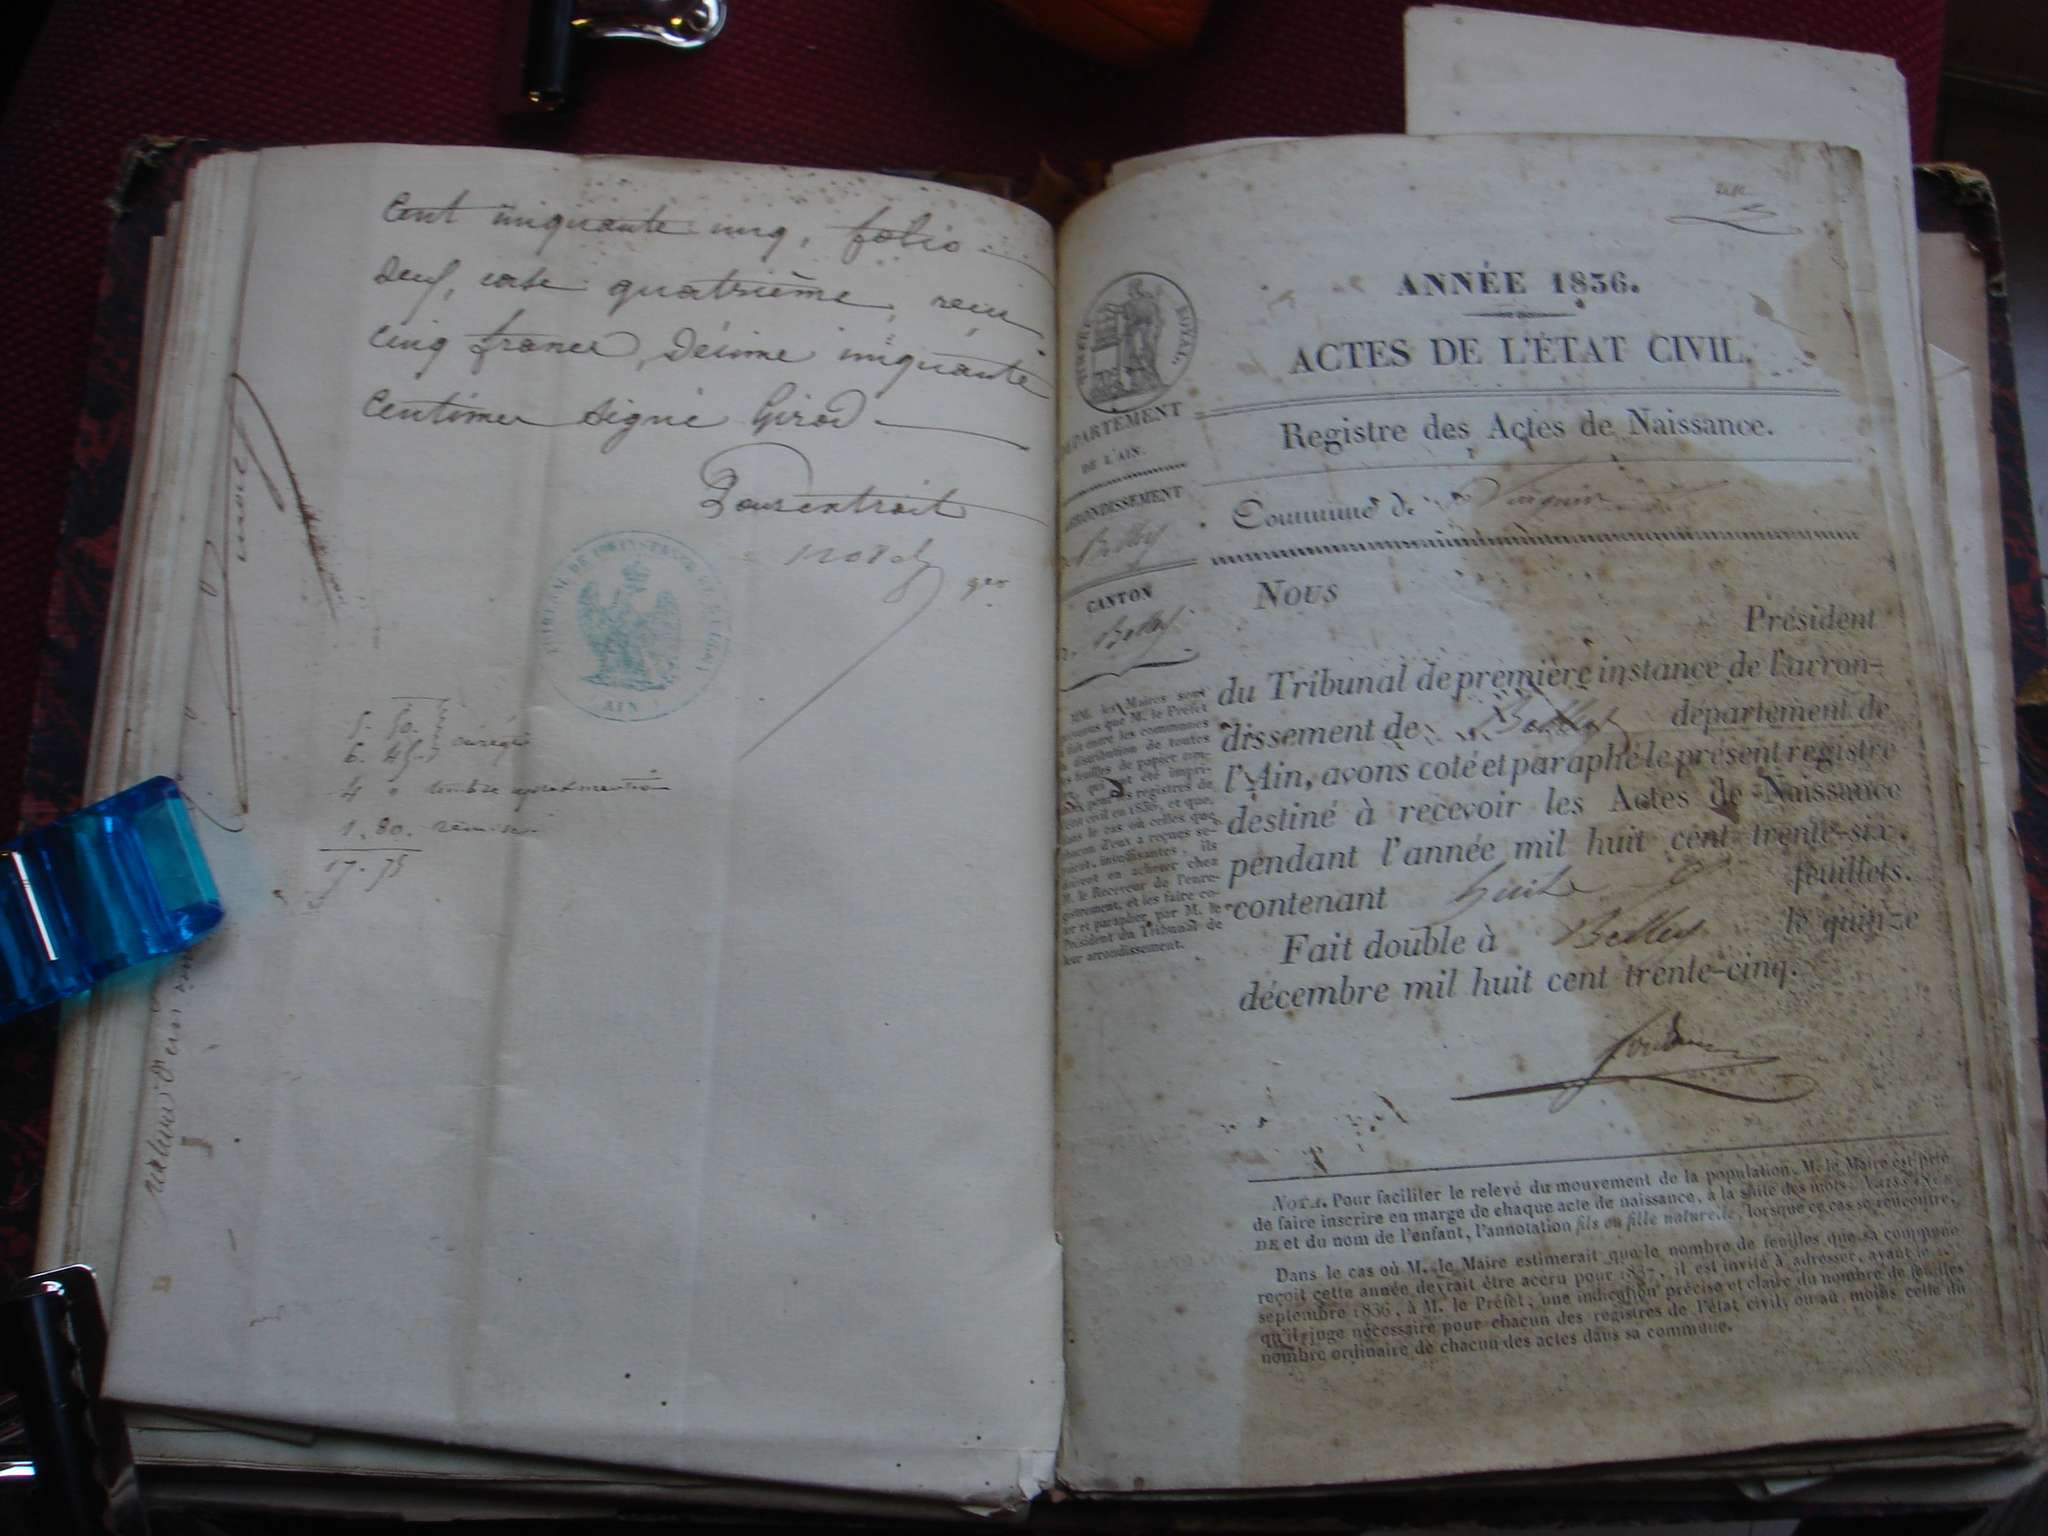 cent cinquante cinq, folio
deux, case quatrième, reçu
cinq francs, décime cinquante
centimes signé Girod
Pour extrait
5. 50.
6. 45
4 " timbre
1. 80. remise
17. 75
ANNÉE 1836.
ACTES DE L'ÉTAT CIVIL.
Registre des Actes de Naissance.
ROYAL.
DÉPARTEMENT
DE L'AIN.
ARRONDISSEMENT
Belley
CANTON
Belley
Commune de
MM. les Maires sont
que M. le Préfet
entre les communes
distribution de toutes
feuilles de papier
qui ont été
pour les registres de
civil en 1836, et que,
dans le cas où celles que
chacun d'eux a reçues
insuffisantes, ils
en acheter chez
M. le Receveur de l'enre-
gistrement, et les faire co-
ter et parapher par M. le
Président du Tribunal de
leur arrondissement.
Nous
Président
du Tribunal de première instance de l'arron-
dissement de Belley département de
l'Ain, avons coté et paraphé le présent registre
destiné à recevoir les Actes de Naissance
pendant l'année mil huit cent trente-six,
contenant huit feuillets.
Fait double à Belley le quinze
décembre mil huit cent trente-cinq.
NOTA. Pour faciliter le relevé du mouvement de la population, M. le Maire est prié
de faire inscrire en marge de chaque acte de naissance, à la suite des mots NAISSANCE
DE et du nom de l'enfant, l'annotation fils ou fille naturelle, lorsque ce cas se rencontre.
Dans le cas où M. le Maire estimerait que le nombre de feuilles que sa commune
reçoit cette année devrait être accru pour 1837, il est invité à adresser, avant le 1.er
septembre 1836, à M. le Préfet, une indication précise et claire du nombre de feuilles
qu'il juge nécessaire pour chacun des registres de l'état civil, ou au moins celle du
nombre ordinaire de chacun des actes dans sa commune.